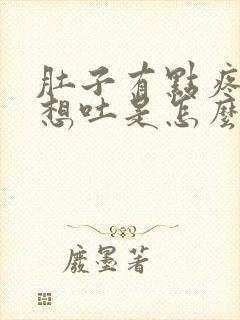 肚子有點疼
想吐是怎麼
廢墨著